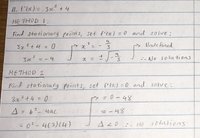 a. f'(x) = 3x² + 4
METHOD 1
Find stationary points, set f'(x) = 0 and solve:
3x² + 4 = 0 x² = -4/3 Undefined
3x² = -4 x = ±√-4/3 ∴ No solutions
METHOD 2
Find stationary points, set f'(x) = 0 and solve:
3x² + 4 = 0 = 0 - 48
Δ = b² - 4ac = -48
= 0² - 4(3)(4) Δ < 0 ∴ no solutions